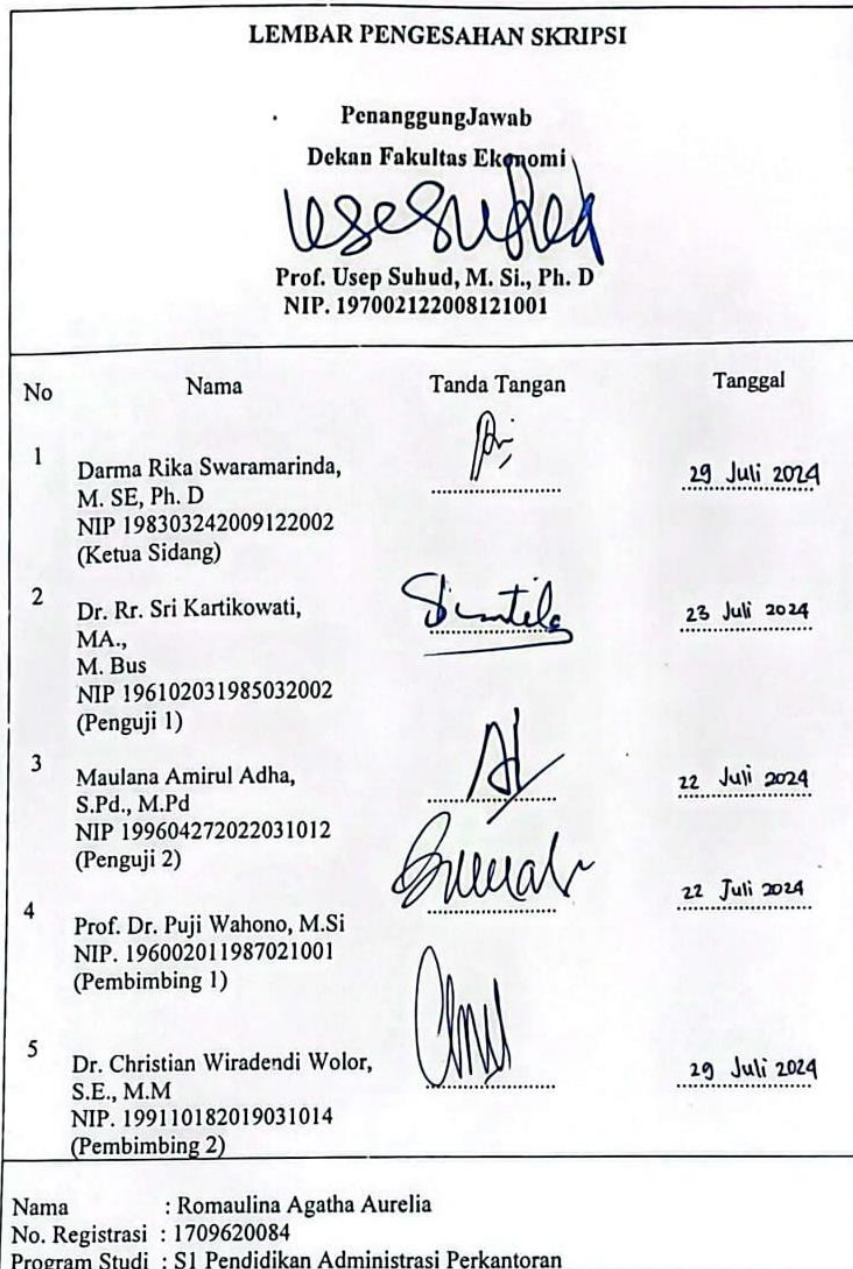 LEMBAR PENGESAHAN SKRIPSI
PenanggungJawab
Dekan Fakultas Ekonomi
Prof. Usep Suhud, M. Si., Ph. D
NIP. 197002122008121001
No Nama Tanda Tangan Tanggal
1
Darma Rika Swaramarinda,
M. SE, Ph. D
NIP 198303242009122002
(Ketua Sidang)
29 Juli 2024
2
Dr. Rr. Sri Kartikowati,
MA.,
M. Bus
NIP 196102031985032002
(Penguji 1)
23 Juli 2024
3
Maulana Amirul Adha,
S.Pd., M.Pd
NIP 199604272022031012
(Penguji 2)
22 Juli 2024
4
Prof. Dr. Puji Wahono, M.Si
NIP. 196002011987021001
(Pembimbing 1)
22 Juli 2024
5
Dr. Christian Wiradendi Wolor,
S.E., M.M
NIP. 199110182019031014
(Pembimbing 2)
29 Juli 2024
Nama : Romaulina Agatha Aurelia
No. Registrasi : 1709620084
Program Studi : S1 Pendidikan Administrasi Perkantoran